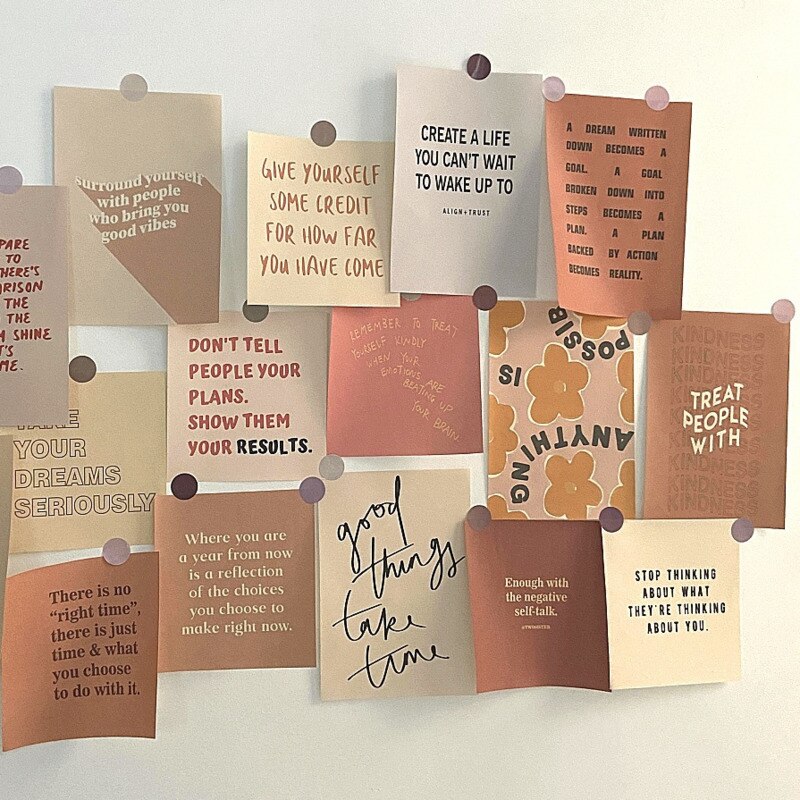 surround yourself
with people
who bring you
good vibes
GIVE YOURSELF
SOME CREDIT
FOR HOW FAR
YOU HAVE COME
CREATE A LIFE
YOU CAN'T WAIT
TO WAKE UP TO
ALIGN+TRUST
A DREAM WRITTEN
DOWN BECOMES A
GOAL. A GOAL
BROKEN DOWN INTO
STEPS BECOMES A
PLAN. A PLAN
BACKED BY ACTION
BECOMES REALITY.
PARE
TO
HERE'S
ARISON
THE
THE
SHINE
T'S
ME.
DON'T TELL
PEOPLE YOUR
PLANS.
SHOW THEM
YOUR RESULTS.
REMEMBER TO TREAT
YOURSELF KINDLY
WHEN YOUR
EMOTIONS ARE
BEATING UP
YOUR BRAIN
ANYTHING
IS
POSSIB
KINDNESS
KINDNESS
KINDNESS
KINDNESS
TREAT
PEOPLE
WITH
KINDNESS
KINDNESS
KINDNESS
KINDNESS
TAKE
YOUR
DREAMS
SERIOUSLY
There is no
"right time",
there is just
time & what
you choose
to do with it.
Where you are
a year from now
is a reflection
of the choices
you choose to
make right now.
good
things
take
time
Enough with
the negative
self-talk.
STOP THINKING
ABOUT WHAT
THEY'RE THINKING
ABOUT YOU.